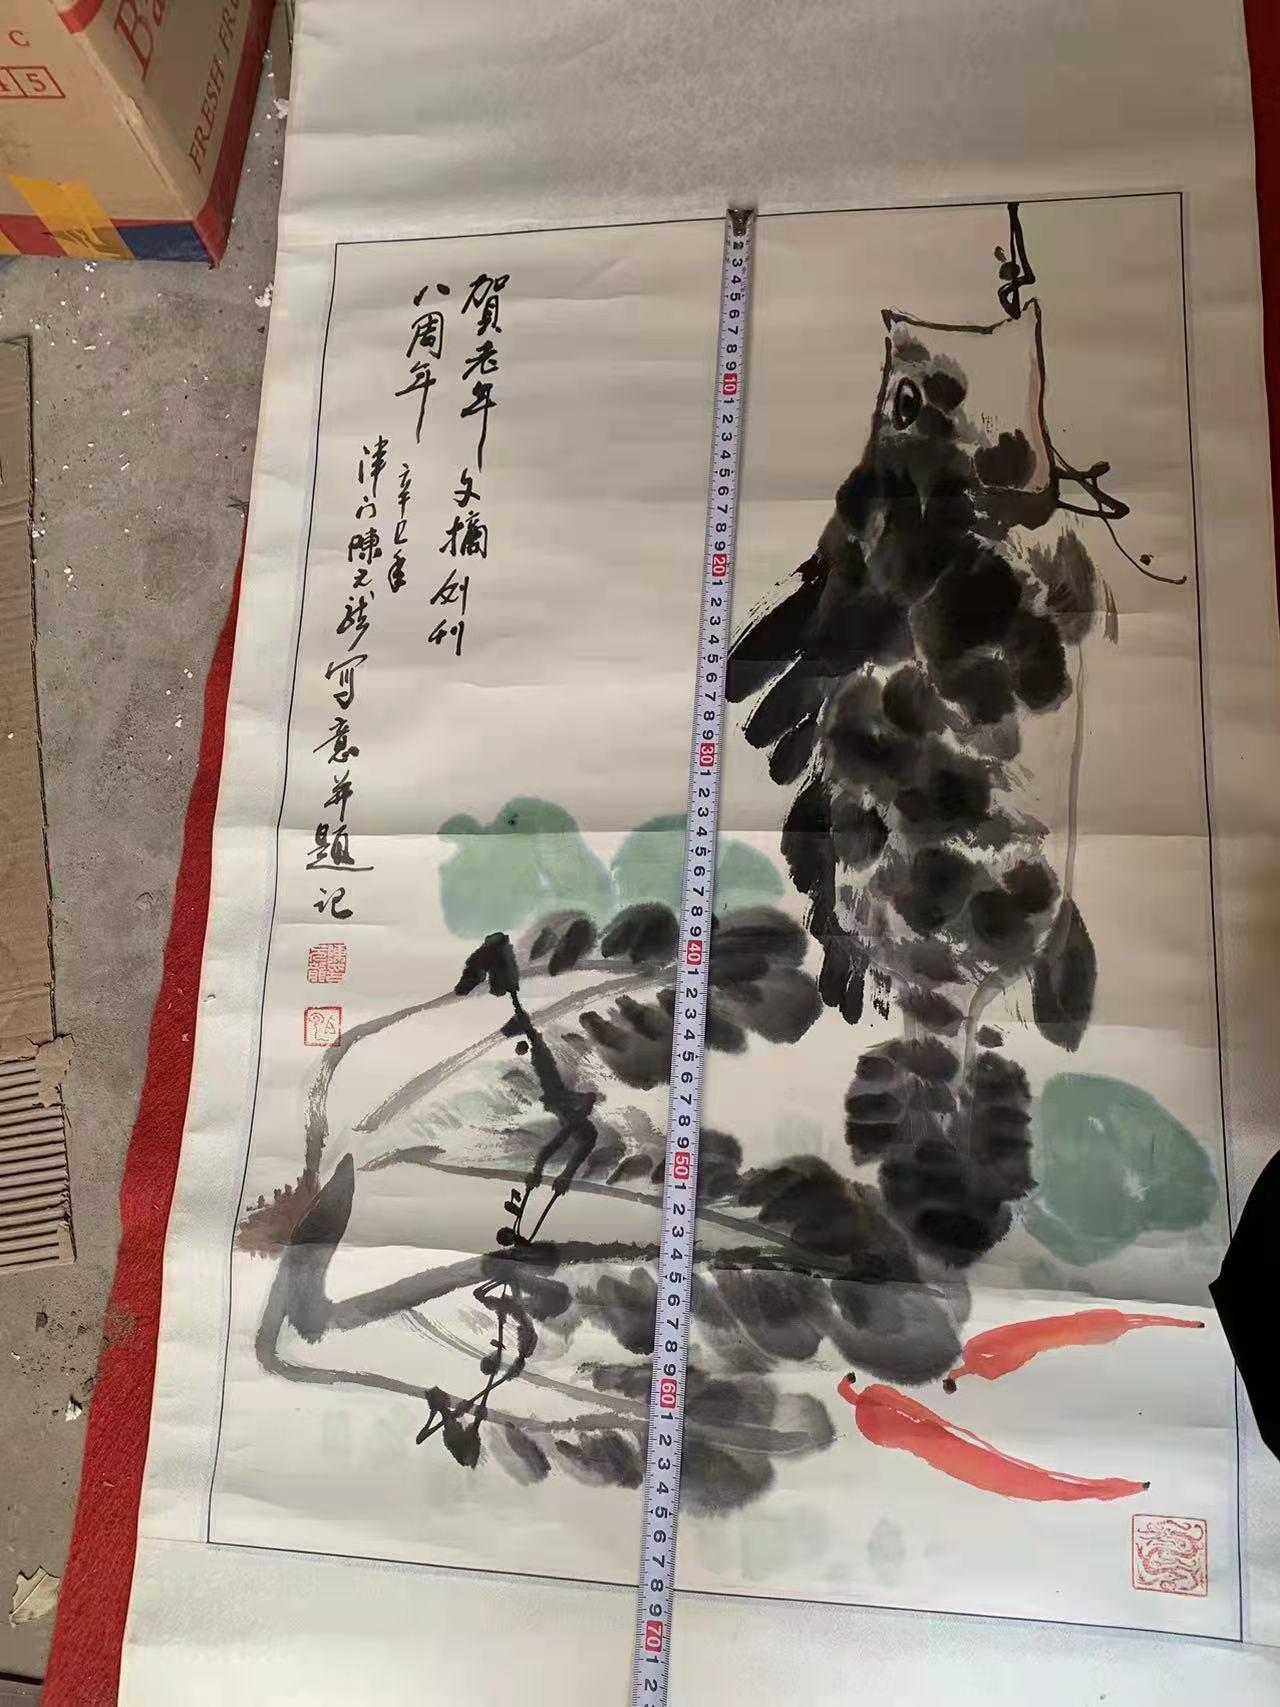 賀老年文摘创刊
八周年
辛巳年
津门陳元龙写意并题记
C
4 5
Ba
FRESH FRU
2 3 4 5 6 7 8 9 10 1 2 3 4 5 6 7 8 9 20 1 2 3 4 5 6 7 8 9 30 1 2 3 4 5 6 7 8 9 40 1 2 3 4 5 6 7 8 9 50 1 2 3 4 5 6 7 8 9 60 1 2 3 4 5 6 7 8 9 70 1 2